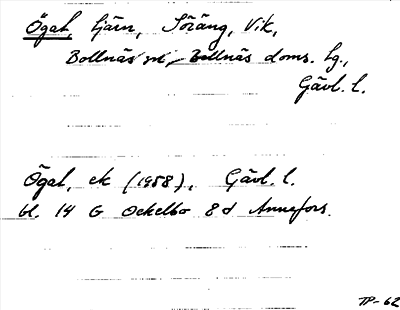 Ögat, tjärn, Söräng, Vik,
Bollnäs sn, Bollnäs doms. tg.,
Gävl. l.
Ögat, ek (1958), Gävl. l.
bl. 14 G Ockelbo 8 d Annefors.
TP-62